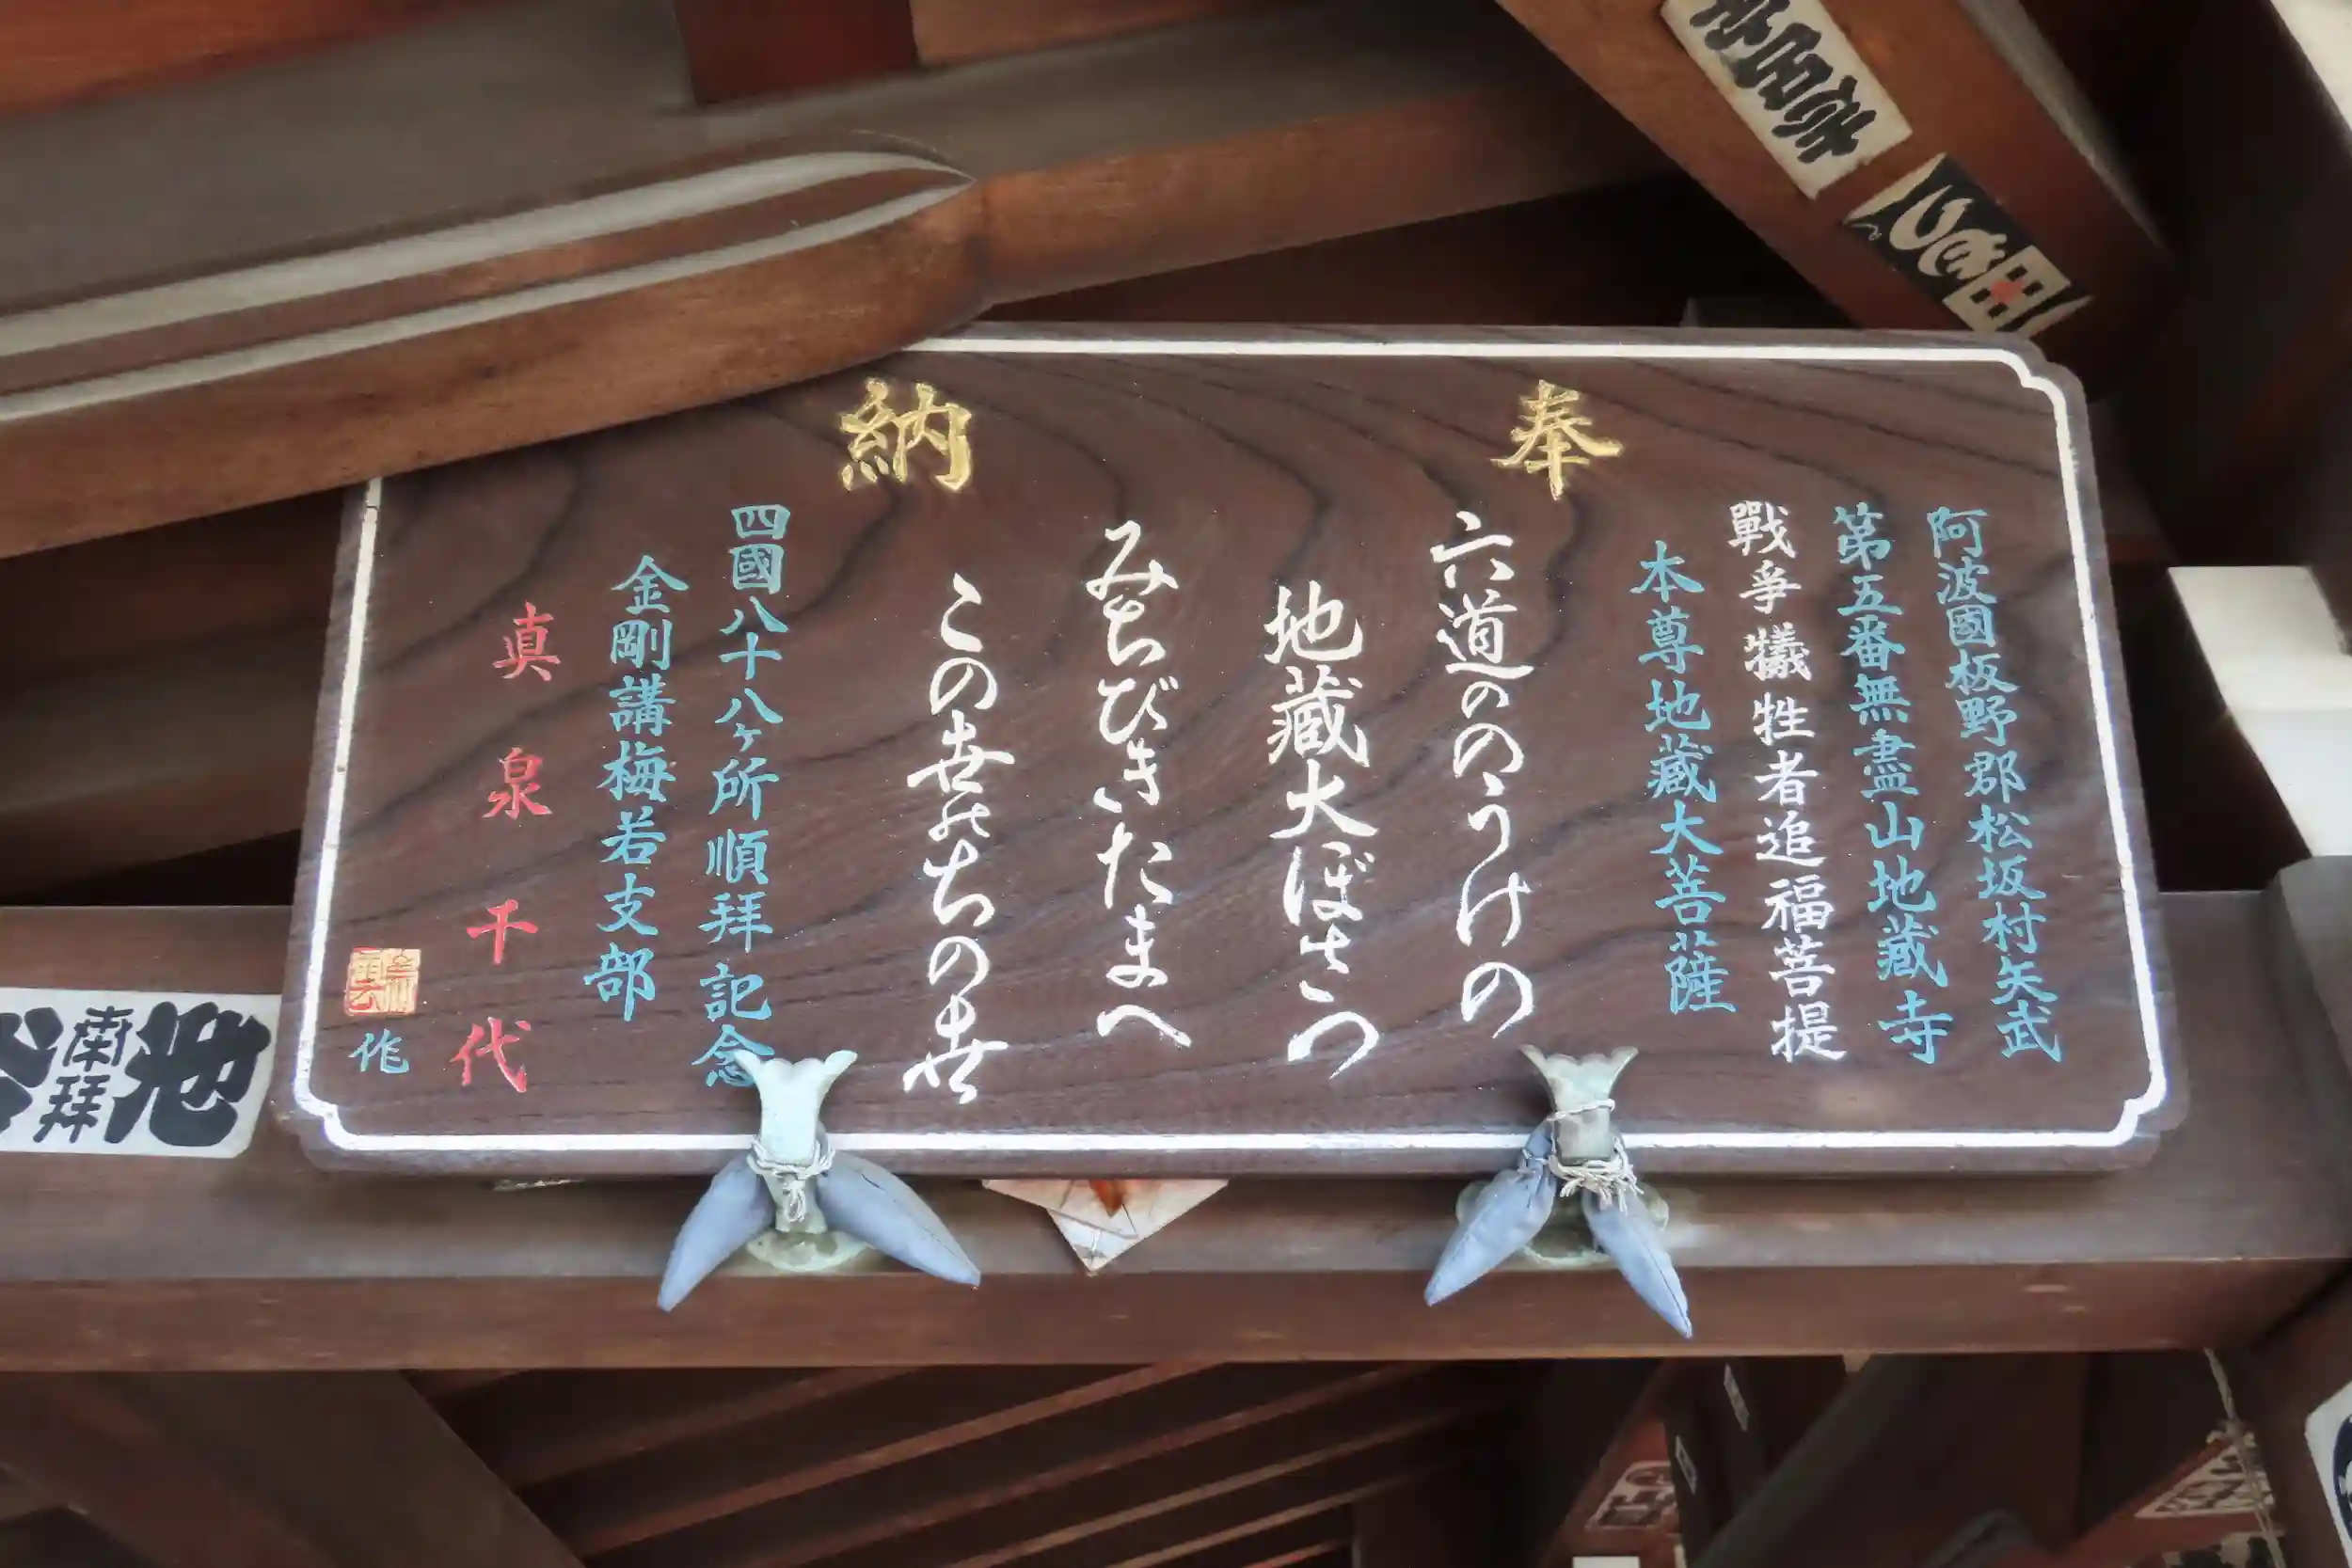 奉納
阿波國板野郡松坂村矢武
第五番無盡山地蔵寺
戰爭犠牲者追福菩提
本尊地蔵大菩薩
六道ののうけの
地蔵大ぼさつ
みちびきたまへ
この世のちの世
四國八十八ヶ所順拝記念
金剛講梅若支部
真泉千代
作
南拝
池